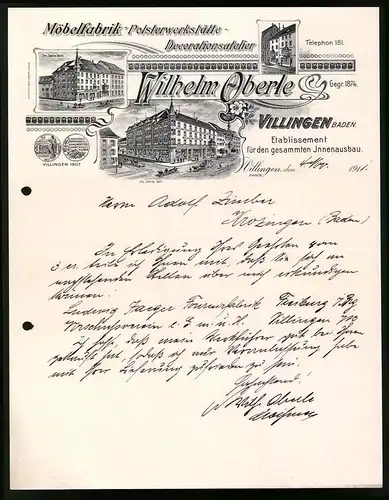 Möbelfabrik - Polsterwerkstätte -
Decorationsatelier
Telephon 181.
Wilhelm Oberle
Gegr. 1874.
VILLINGEN BADEN.
Etablissement
für den gesammten Jnnenausbau.
VILLINGEN 1907
Villingen, den 4 Nov. 191
Herrn Adolf
(Baden)
In Erledigung Ihres Geehrten vom
3 er. teile ich Ihnen mit, daß Sie sich an
nachstehenden Stellen über mich erkundigen
können.
Ludwig Jaeger Fournierfabrik Freiburg i/Brg
Vorschußverein e. G. m. u. H. Villingen
Ich hoffe, daß mein Werkführer gut bei Ihnen
gekauft hat, sodaß ich nur Veranlassung habe
mit Ihrer Lieferung zufrieden zu sein.
Hochachtend!
Wilh. Oberle